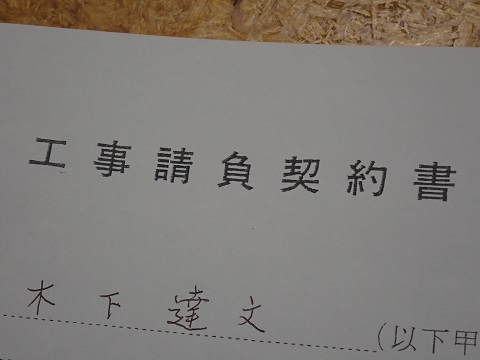 工事請負契約書
木下達文 (以下甲